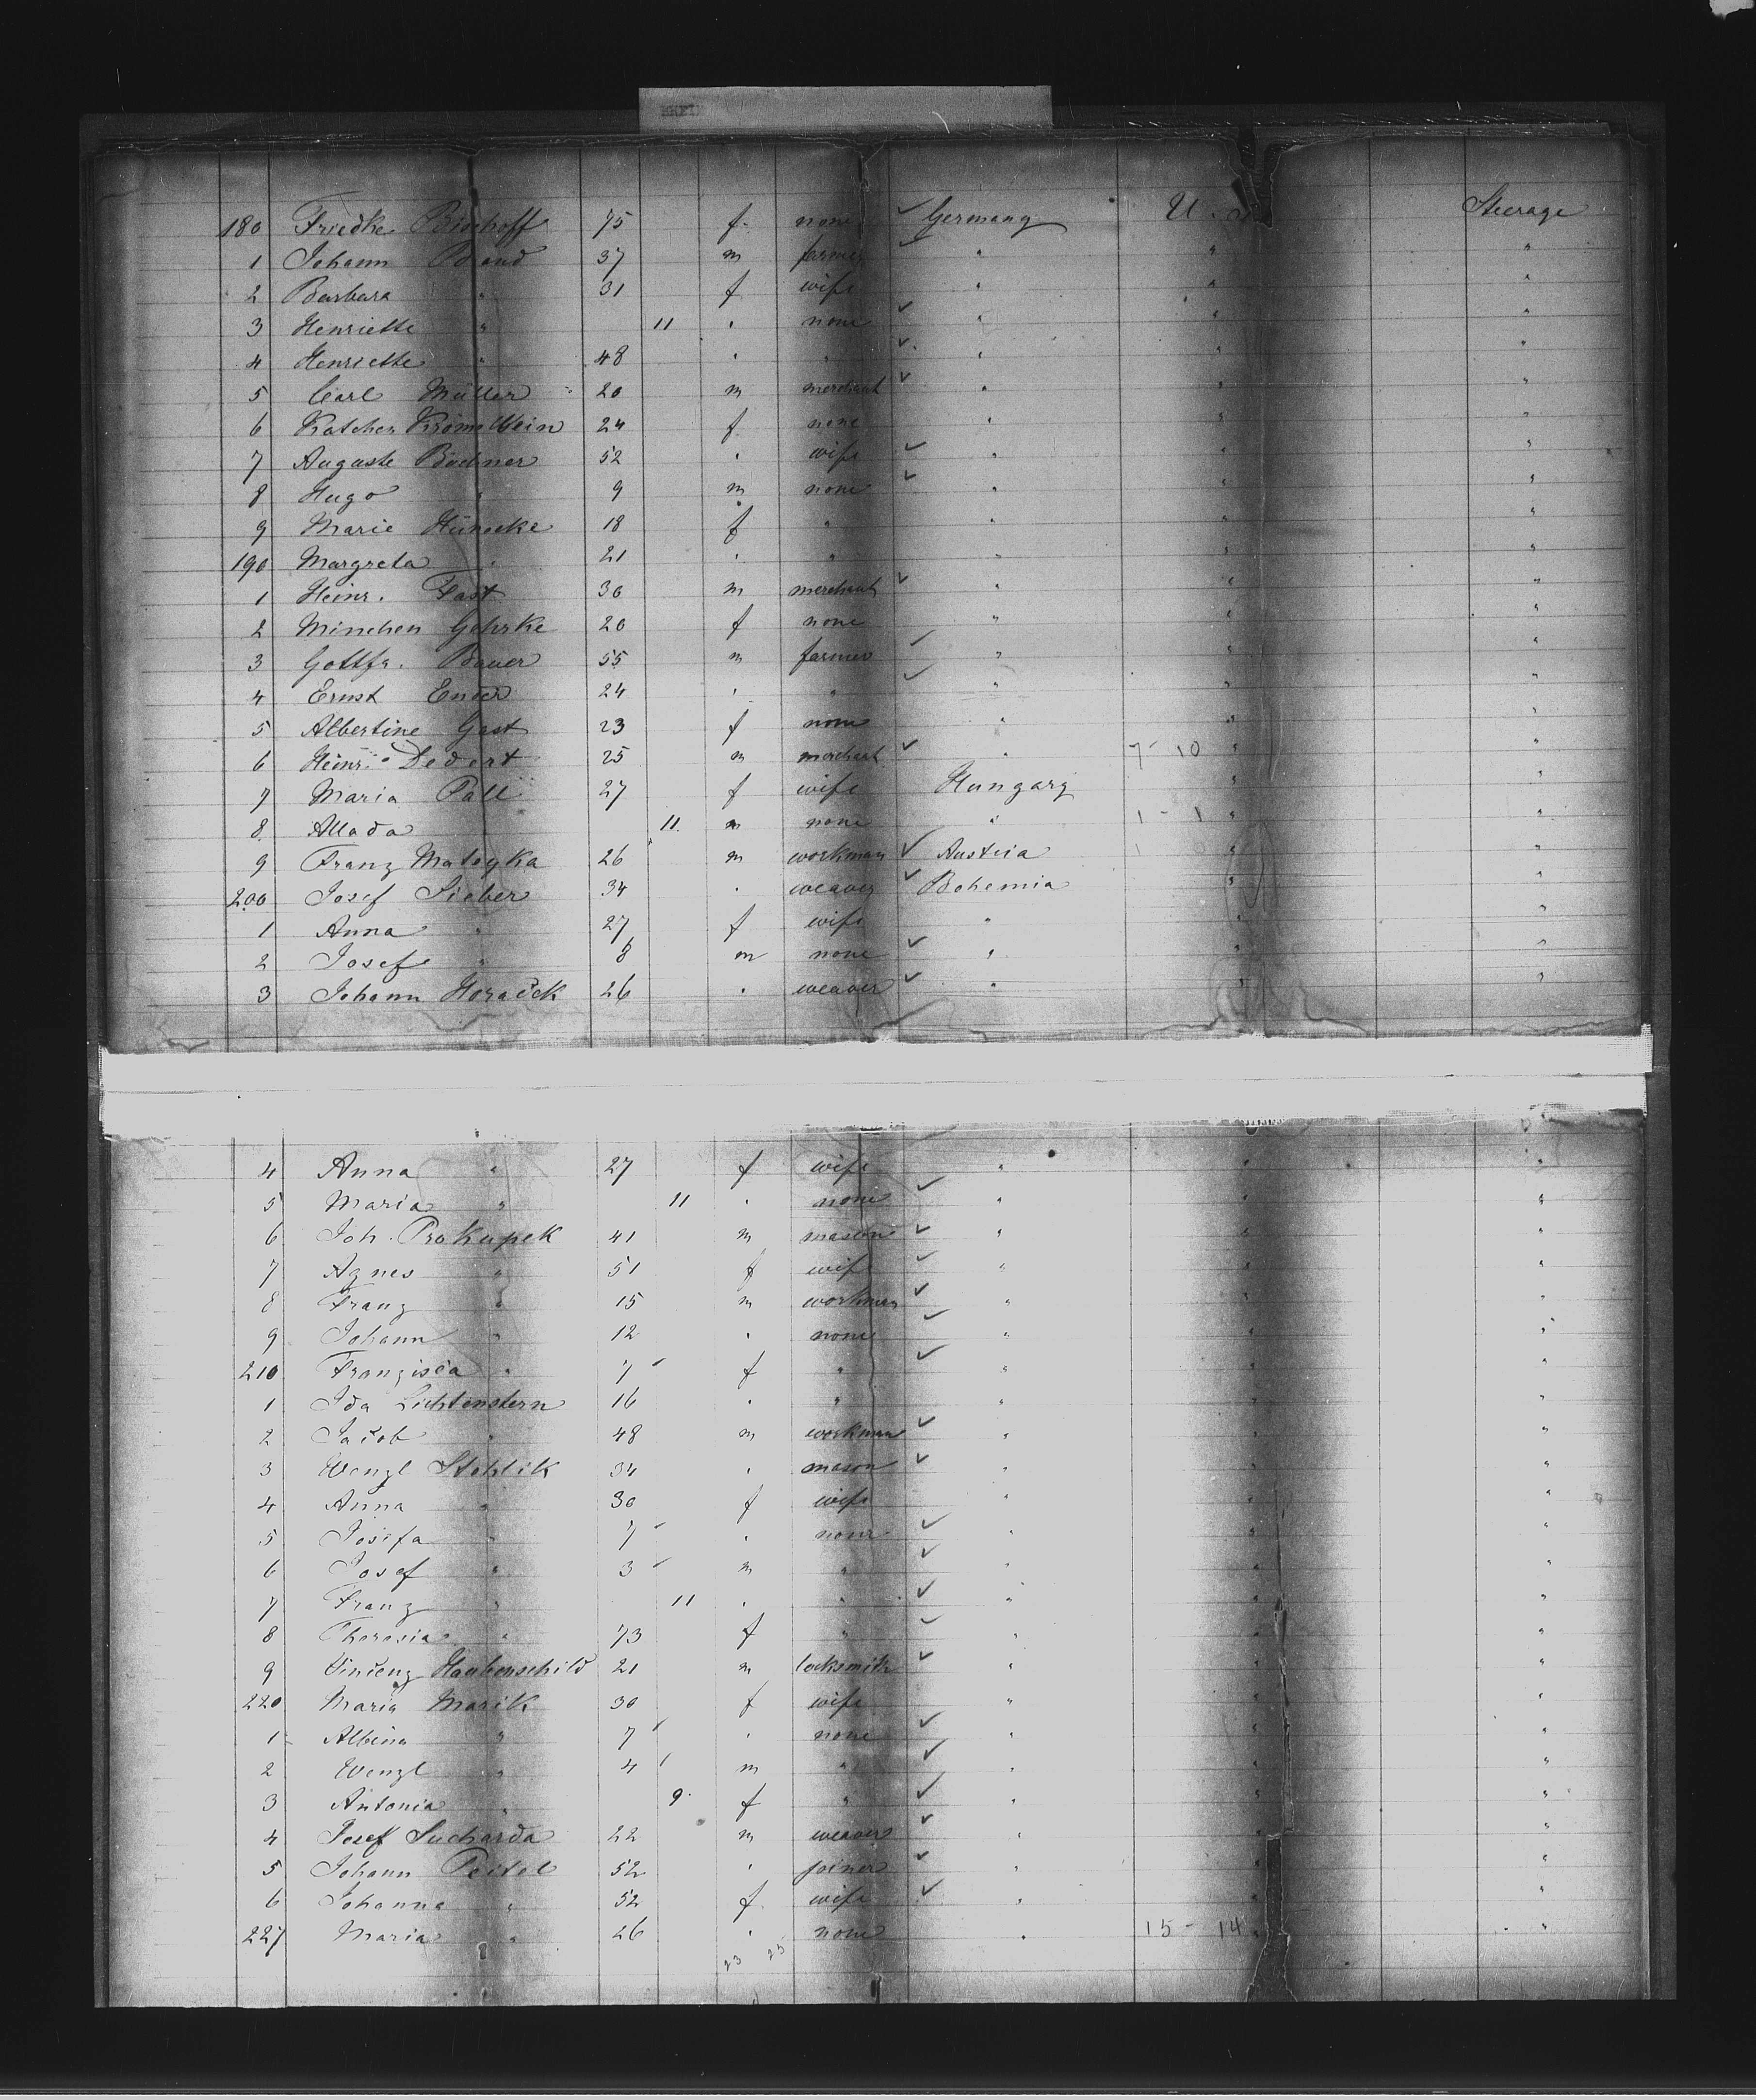 180 Friedke Bischoff 75 f. none ✓ Germany U. Steerage
1 Johann 37 m farmer ✓ " " "
2 Barbara " 31 f wife " " "
3 Henriette " 11 " none ✓ " " "
4 Henriette " 48 " " ✓ " " "
5 Carl Müller 20 m merchant ✓ " " "
6 24 f none " " "
7 Auguste 52 " wife ✓ " " "
8 Hugo " 9 m none ✓ " " "
9 Marie 18 f " " " "
190 Margreta " 21 " " " " "
1 Heinr. Fast 30 m merchant ✓ " " "
2 Minchen Gehrke 20 f none " " "
3 Gottfr. Bauer 55 m farmer ✓ " " "
4 Ernst Ender 24 " " ✓ " " "
5 Albertine Gast 23 f none " " "
6 Heinr. Dedert 25 m merchant ✓ " 7-10 " "
7 Maria Pall 27 f wife Hungary " "
8 11 m none " 1-1 " "
9 Franz Mateyka 26 m workman ✓ Austria " "
200 Josef Sieber 34 " weaver ✓ Bohemia " "
1 Anna " 27 f wife " " "
2 Josef " 8 m none ✓ " " "
3 Johann Horacek 26 " weaver ✓ " " "
4 Anna " 27 f wife " " "
5 Maria " 11 " none ✓ " " "
6 Joh. Prokupek 41 m mason ✓ " " "
7 Agnes " 51 f wife ✓ " " "
8 Franz " 15 m workman ✓ " " "
9 Johann " 12 " none ✓ " " "
210 Franzisca " 7 f " ✓ " " "
1 Ida Lichtenstern 16 " " " " "
2 Jacob " 48 m workman ✓ " " "
3 Wenzl Stehlik 34 " mason ✓ " " "
4 Anna " 30 f wife " " "
5 Josefa " 7 " none ✓ " " "
6 Josef " 3 m " ✓ " " "
7 Franz " 11 " " ✓ " " "
8 Theresia " 73 f " ✓ " " "
9 Vincenz Haubenschild 21 m locksmith ✓ " " "
220 Maria Marik 30 f wife " " "
1 Albina " 7 " none ✓ " " "
2 Wenzl " 4 m " ✓ " " "
3 Antonia " 9 f " ✓ " " "
4 Josef Sucharda 22 m weaver ✓ " " "
5 Johann Peitel 52 " joiner ✓ " " "
6 Johanna " 52 f. wife ✓ " " "
227 Maria " 26 " none " 15-14 " "
23 25